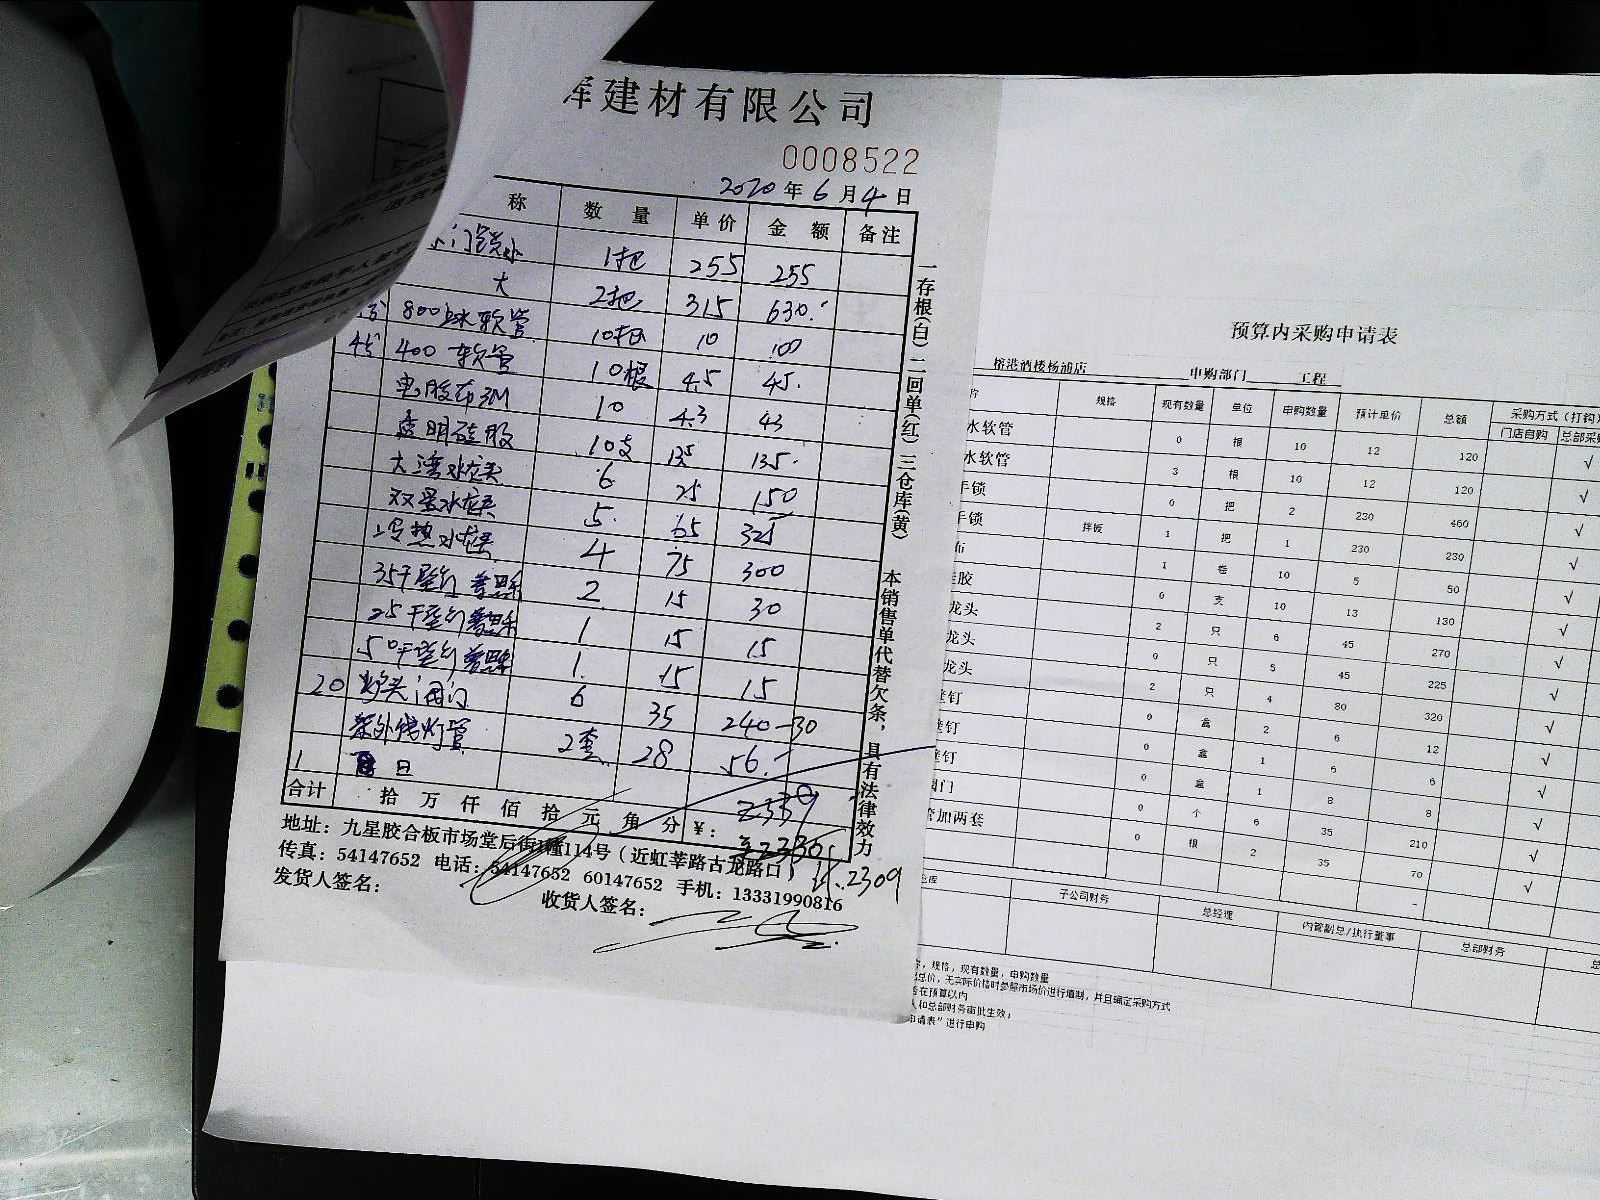 建材有限公司
0008522
2020年6月4日
称 数量 单价 金额 备注
门锁小 1把 255 255
大 2把 315 630.-
800上水软管 10根 10 100
4分 400软管 10根 4.5 45.
电胶布3M 10 4.3 43
透明硅胶 10支 13.5 135.
大弯水龙头 6 25 150
水龙头 5. 65 325
冷热水龙头 4 75 300
35干壁钉 2 15 30
25干壁钉 1 15 15
50干壁钉 1. 15 15
20 炉头阀门 6 35 240-30
烤灯管 2套 28 56.-
合计 拾 万 仟 佰 拾 元 角 分 ¥: 2339
2309
地址：九星胶合板市场堂后街1幢114号（近虹莘路古龙路口）
传真：54147652 电话：54147652 60147652 手机：13331990816
发货人签名： 收货人签名：
一存根(白) 二回单(红) 三仓库(黄) 本销售单代替欠条，具有法律效力
预算内采购申请表
榕港酒楼杨浦店 申购部门 工程
称 规格 现有数量 单位 申购数量 预计单价 总额 采购方式（打钩）
门店自购 总部采
水软管 0 根 10 12 120 √
水软管 3 根 10 12 120 √
手锁 0 把 2 230 460 √
手锁 拌饭 1 把 1 230 230 √
布 1 卷 10 5 50 √
胶 0 支 10 13 130 √
龙头 2 只 6 45 270 √
龙头 0 只 5 45 225 √
龙头 2 只 4 80 320 √
钉 0 盒 2 6 12 √
钉 0 盒 1 6 6 √
钉 0 盒 1 8 8 √
阀门 0 个 6 35 210 √
管加两套 0 根 2 35 70 √
-
仓库 子公司财务 总经理 内管副总/执行董事 总部财务 总
，规格，现有数量，申购数量
总价，无实际价格时参照市场价进行填制，并且确定采购方式
在预算以内
人和总部财务审批生效；
申请表”进行申购